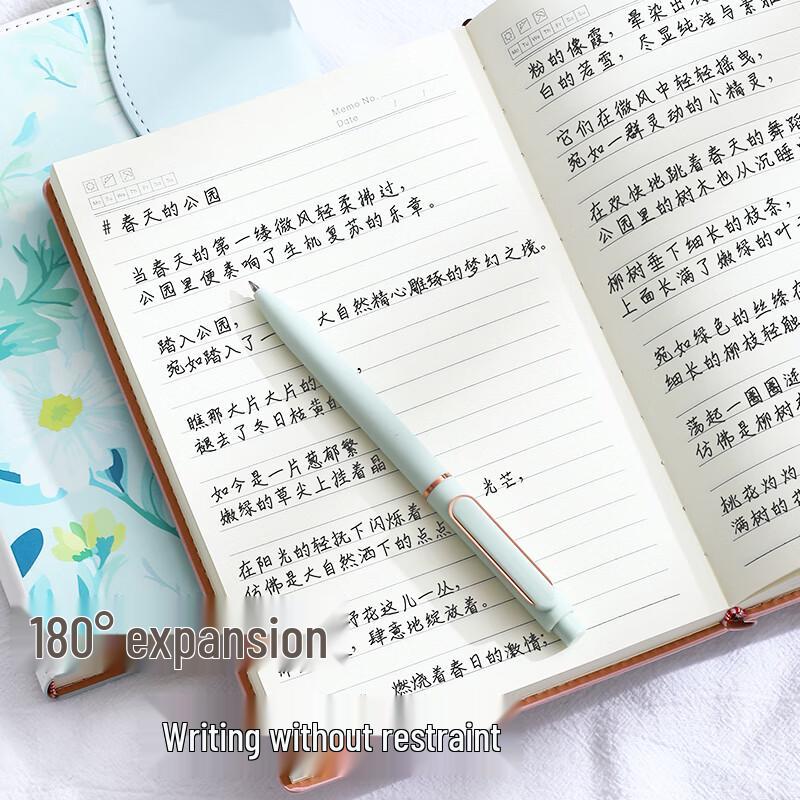 Memo No.
Date / /
Mo Tu We Th Fr Sa Su
# 春天的公园
当春天的第一缕微风轻柔拂过，
公园里便奏响了生机复苏的乐章。
踏入公园，
宛如踏入了一 大自然精心雕琢的梦幻之境。
瞧那大片大片的 ，
褪去了冬日枯黄的
如今是一片葱郁繁
嫩绿的草尖上挂着晶 光芒，
在阳光的轻抚下闪烁着
仿佛是大自然洒下的点点
野花这儿一丛，
，肆意地绽放着。
燃烧着春日的激情；
Mo Tu We Th Fr Sa Su
粉的像霞，晕染出
白的若雪，尽显纯洁与素雅
它们在微风中轻轻摇曳，
宛如一群灵动的小精灵，
在欢快地跳着春天的舞蹈
公园里的树木也从沉睡
柳树垂下细长的枝条，
上面长满了嫩绿的叶
宛如绿色的丝绦在
细长的柳枝轻触
荡起一圈圈涟
仿佛是柳树
桃花灼灼
满树的
180° expansion
Writing without restraint